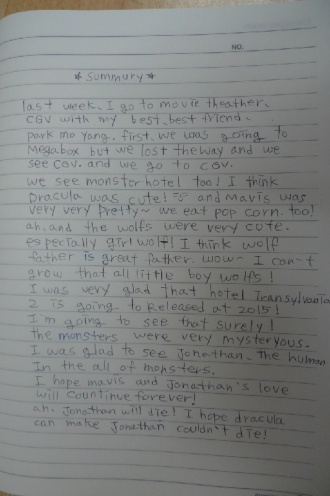 NO.
*Summury*
last week, I go to movie theather.
CGV with my best, best friend.
park mo yang. first, we was going to
Megabox but we lost the way and we
see CGV. and we go to CGV.
we see monster hotel too! I think
Dracula was cute! and Mavis was
very very pretty~ we eat pop corn. too!
ah, and the wolfs were very cute.
especially girl wolf! I think wolf
father is great father. wow~ I can't
grow that all little boy wolfs!
I was very glad that hotel Transylvania
2 is going to released at 2015!
I'm going to see that surely!
the monsters were very mysteryous.
I was glad to see Jonathan. the human
In the all of monsters.
I hope mavis and Jonathan's love
will countinue forever!
ah. Jonathan will die! I hope dracula
can make Jonathan couldn't die!